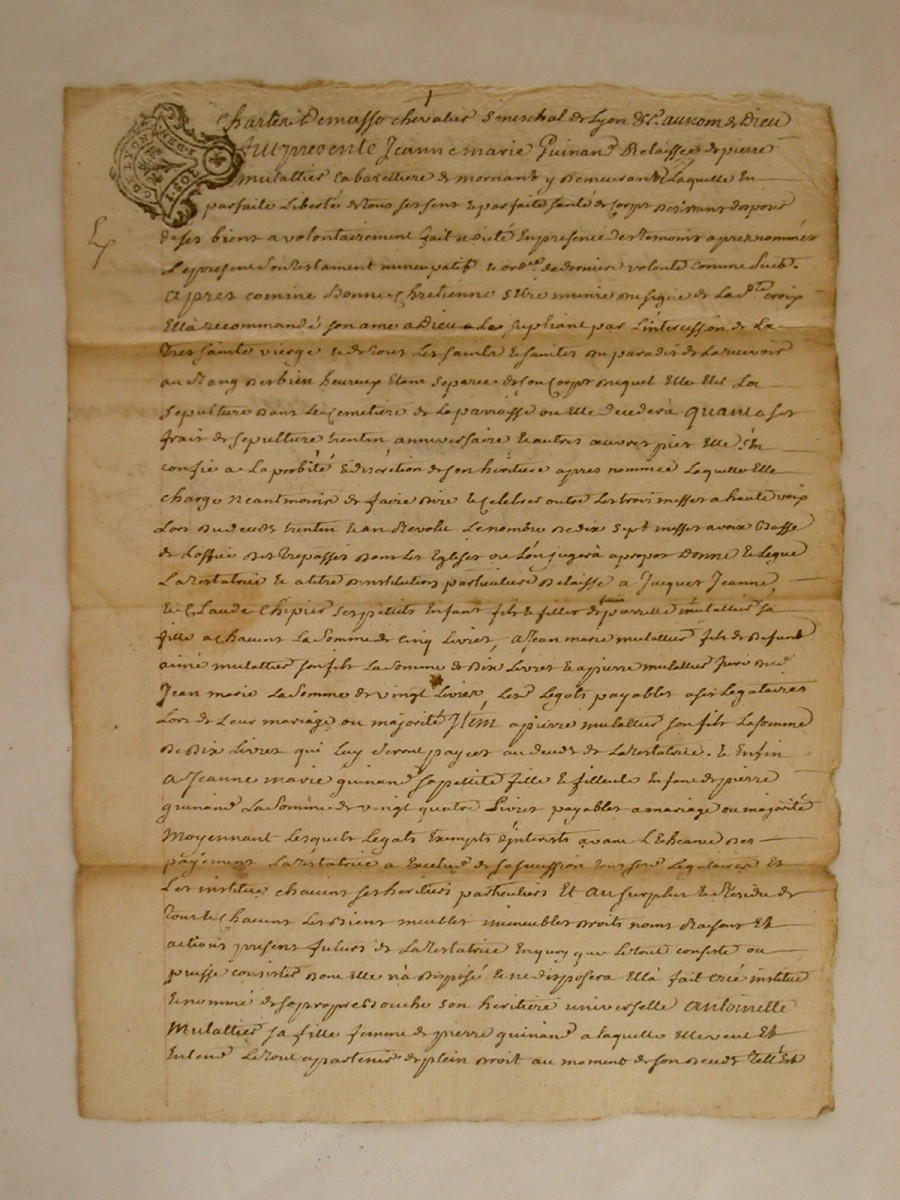 Charles Demasso chevalier seneschal de Lyon &c. au nom de Dieu
fut presente Jeanne marie Guinand Delaissée de pierre
mulattier cabarettiere de mornand y demeurante Laquelle En
parfaite Liberté de tous ses sens & parfaite santé de corps desirant disposer
de ses biens a volontairement fait & dicté En presence des temoins apres nommés
Le present son testament nuncupatif & ordre de derniere volonté comme suit.
apres comme Bonne Chretienne s'etre munie du signe de La Ste croix
Ella recommandé son ame a Dieu Le supliant par L'intercession de La
tres sainte vierge & de tous Les saints & saintes du paradis de La recevoir
au Rang des bien heureux Etant separée de son Corps Duquel Elle Elit La
sepulture Dans Le Cemetiere de La parroisse ou Elle decedera quant a ses
frais de sepulture trentin anniversaire & autres œuvres pies Elle s'En
confie a La probité & discretion de son héritiere apres nommée Laquelle Elle
charge neantmoins de faire dire & Celebrer outre Les trois messes a haute voix
Lors du deceds trentin & an Revolu Le nombre de dix sept messes a voix Basse
de L'office Des trepassés Dans Les Eglises ou L'on jugera apropos Donne & Legue
La testatrice & a titre D'institution particuliere Delaisse a Jacques Jeanne
& Claude Chipier ses petits Enfans fils & filles de pierrette mulattier sa
fille a chacuns La somme de Cinq Livres, a Jean marie mulattier fils de Defunt
aimé mulattier son fils La somme de Dix Livres & a pierre mulattier frere dud.
Jean marie La somme de vingt Livres, Les Legats payables a ses Legataires
Lors de Leurs mariage ou majorité Item a pierre mulattier son fils La somme
de Dix Livres qui Luy seront payées au deceds de La testatrice. & Enfin
a Jeanne marie guinand sa petite fille & filleule Enfant de pierre
guinand La somme de vingt quatre Livres payables a mariage ou majorité
Moyennant Lesquels Legats Exempts d'interests avant L'Echeance Des
payements La testatrice a Exclud de sa succession tous ses Legataires Et
Les institue chacuns ses heritiers particuliers Et au surplus & Residu de
tous & chacuns Les Biens meubles immeubles Droits noms Raisons Et
actions present futurs de La testatrice En quoy que Le tout consiste ou
puisse consister Dont Elle n'a Disposé & ne disposera Ella fait Créé institue
& nommé de sa propre Bouche son heritiere universelle Antoinette
Mulattier sa fille femme de pierre guinand a laquelle Elle veut Et
Entend Le tout apartenir de plein Droit au moment de son Deceds telle Est